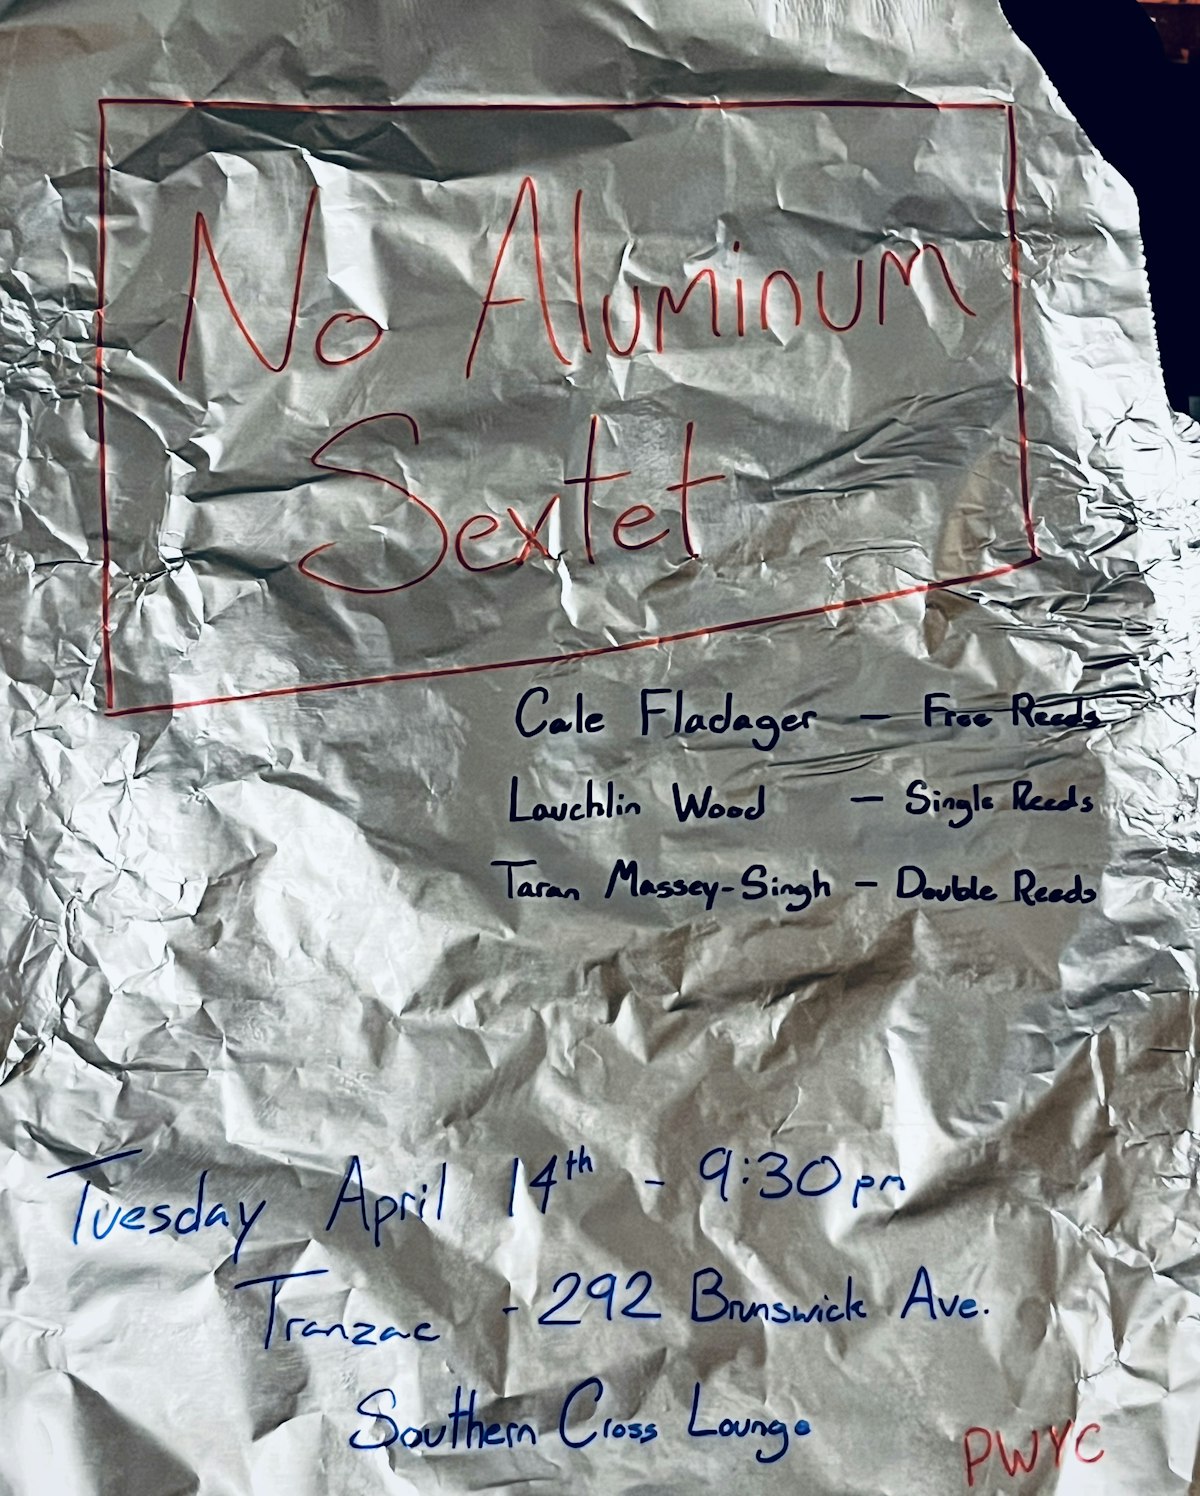 No Aluminum
Sextet
Cale Fladager – Free Reeds
Lauchlin Wood – Single Reeds
Taran Massey-Singh – Double Reeds
Tuesday April 14th - 9:30pm
Tranzac - 292 Brunswick Ave.
Southern Cross Lounge
PWYC